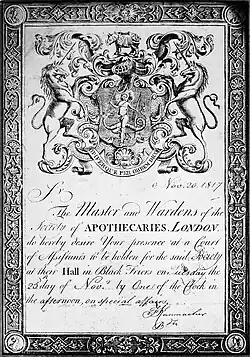 Nov. 20. 1817
Sir
The Master and Wardens of the
Society of APOTHECARIES, LONDON.
do hereby desire Your presence at a Court
of Assistants to be holden for the said Society
at their Hall in Black Friers on
day the
25 day of Nov.r by One of the Clock in
the afternoon, on special affairs.